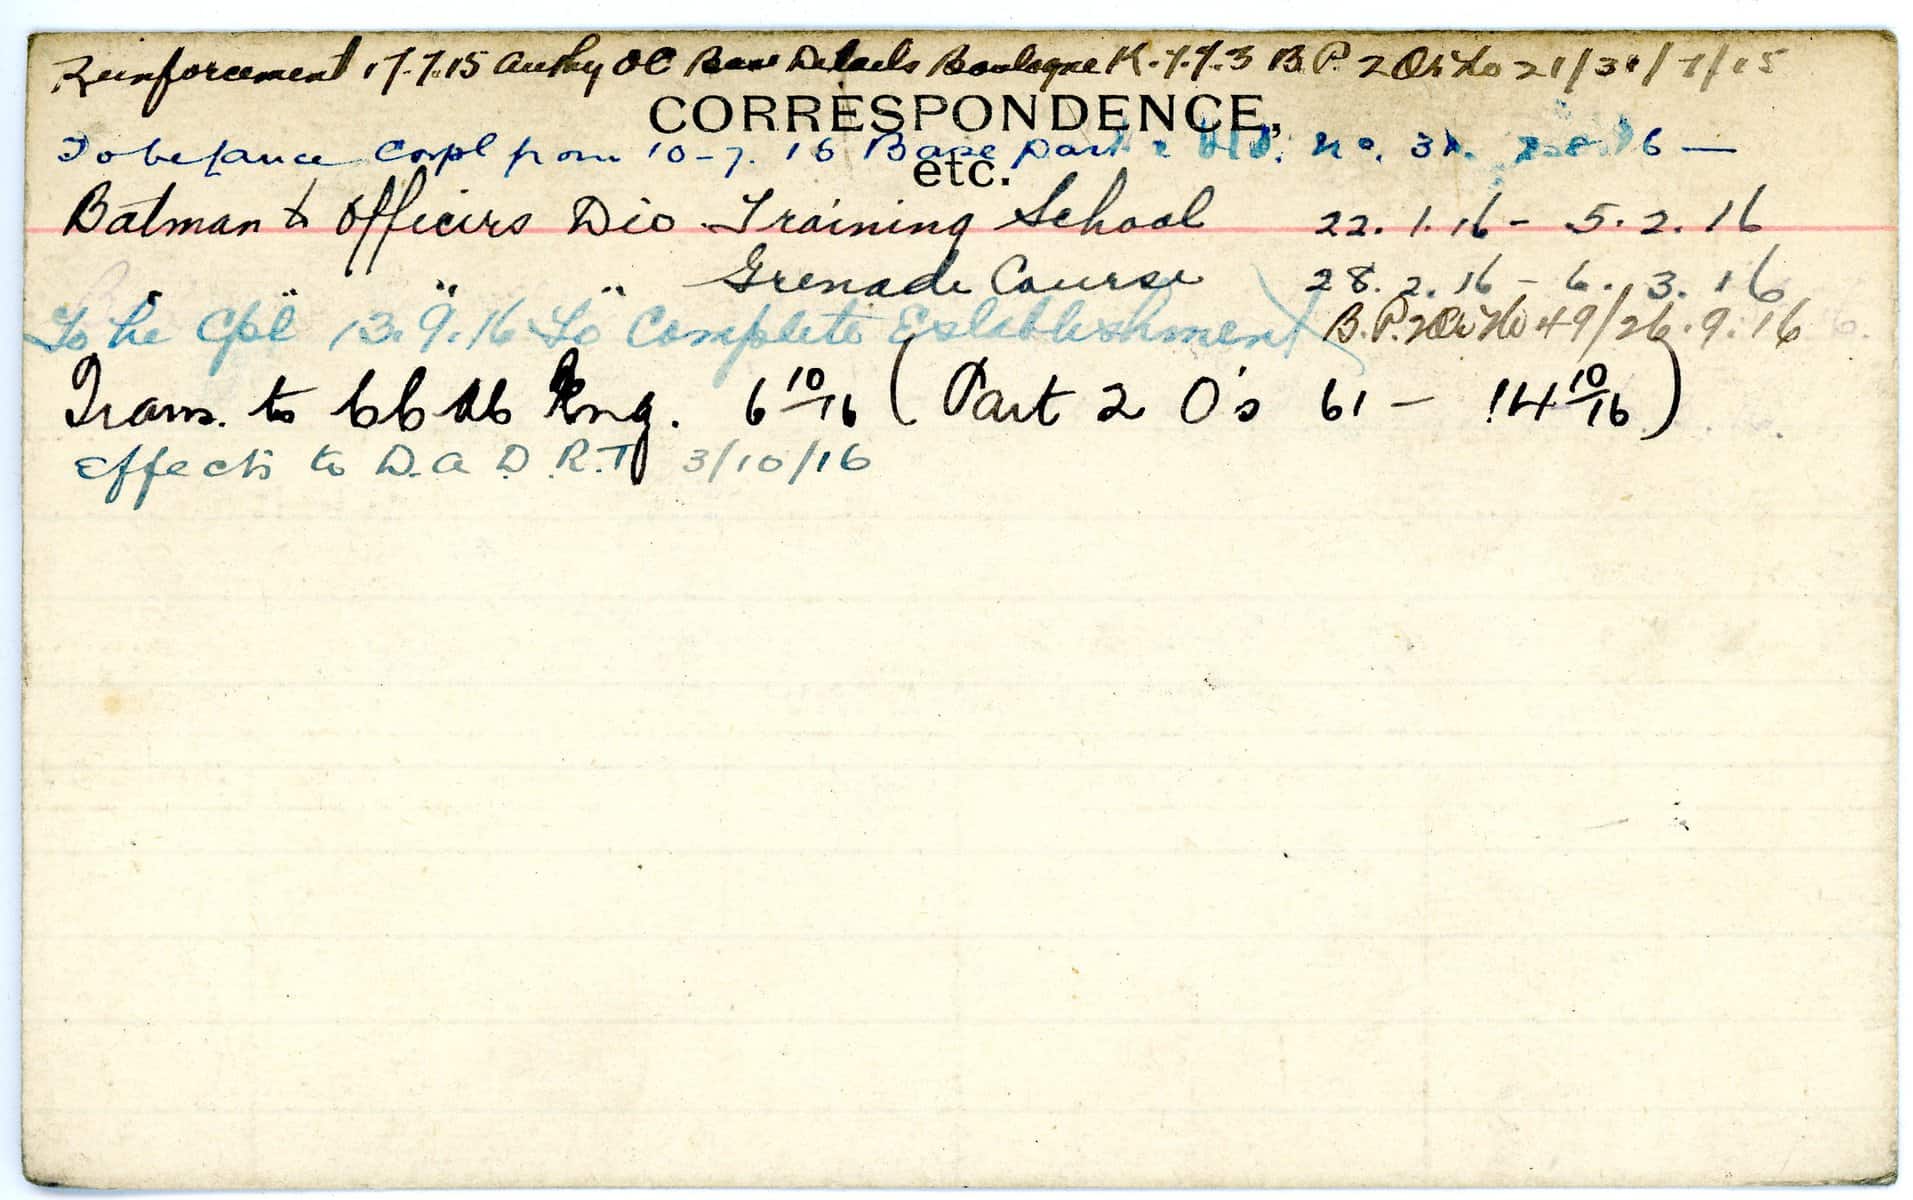 Reinforcement 17.7.15 Authy OC Base Details Boulogne K.7.7.3 B.P. 2 Or No 21/31/7/15
CORRESPONDENCE,
To be Lance Corpl from 10-7.16 Base part 2 No. 6 —
etc.
Batman to Officers Div Training School 22.1.16 - 5.2.16
" " " " Grenade Course 28.2.16 - 6.3.16
To be Cpl 13.9.16 To Complete Establishment B.P. 2 Or No 49/26.9.16
Trans. to Eng. 6 10/16 (Part 2 O's 61 - 14 10/16)
Effects to D.A.D.R.T 3/10/16